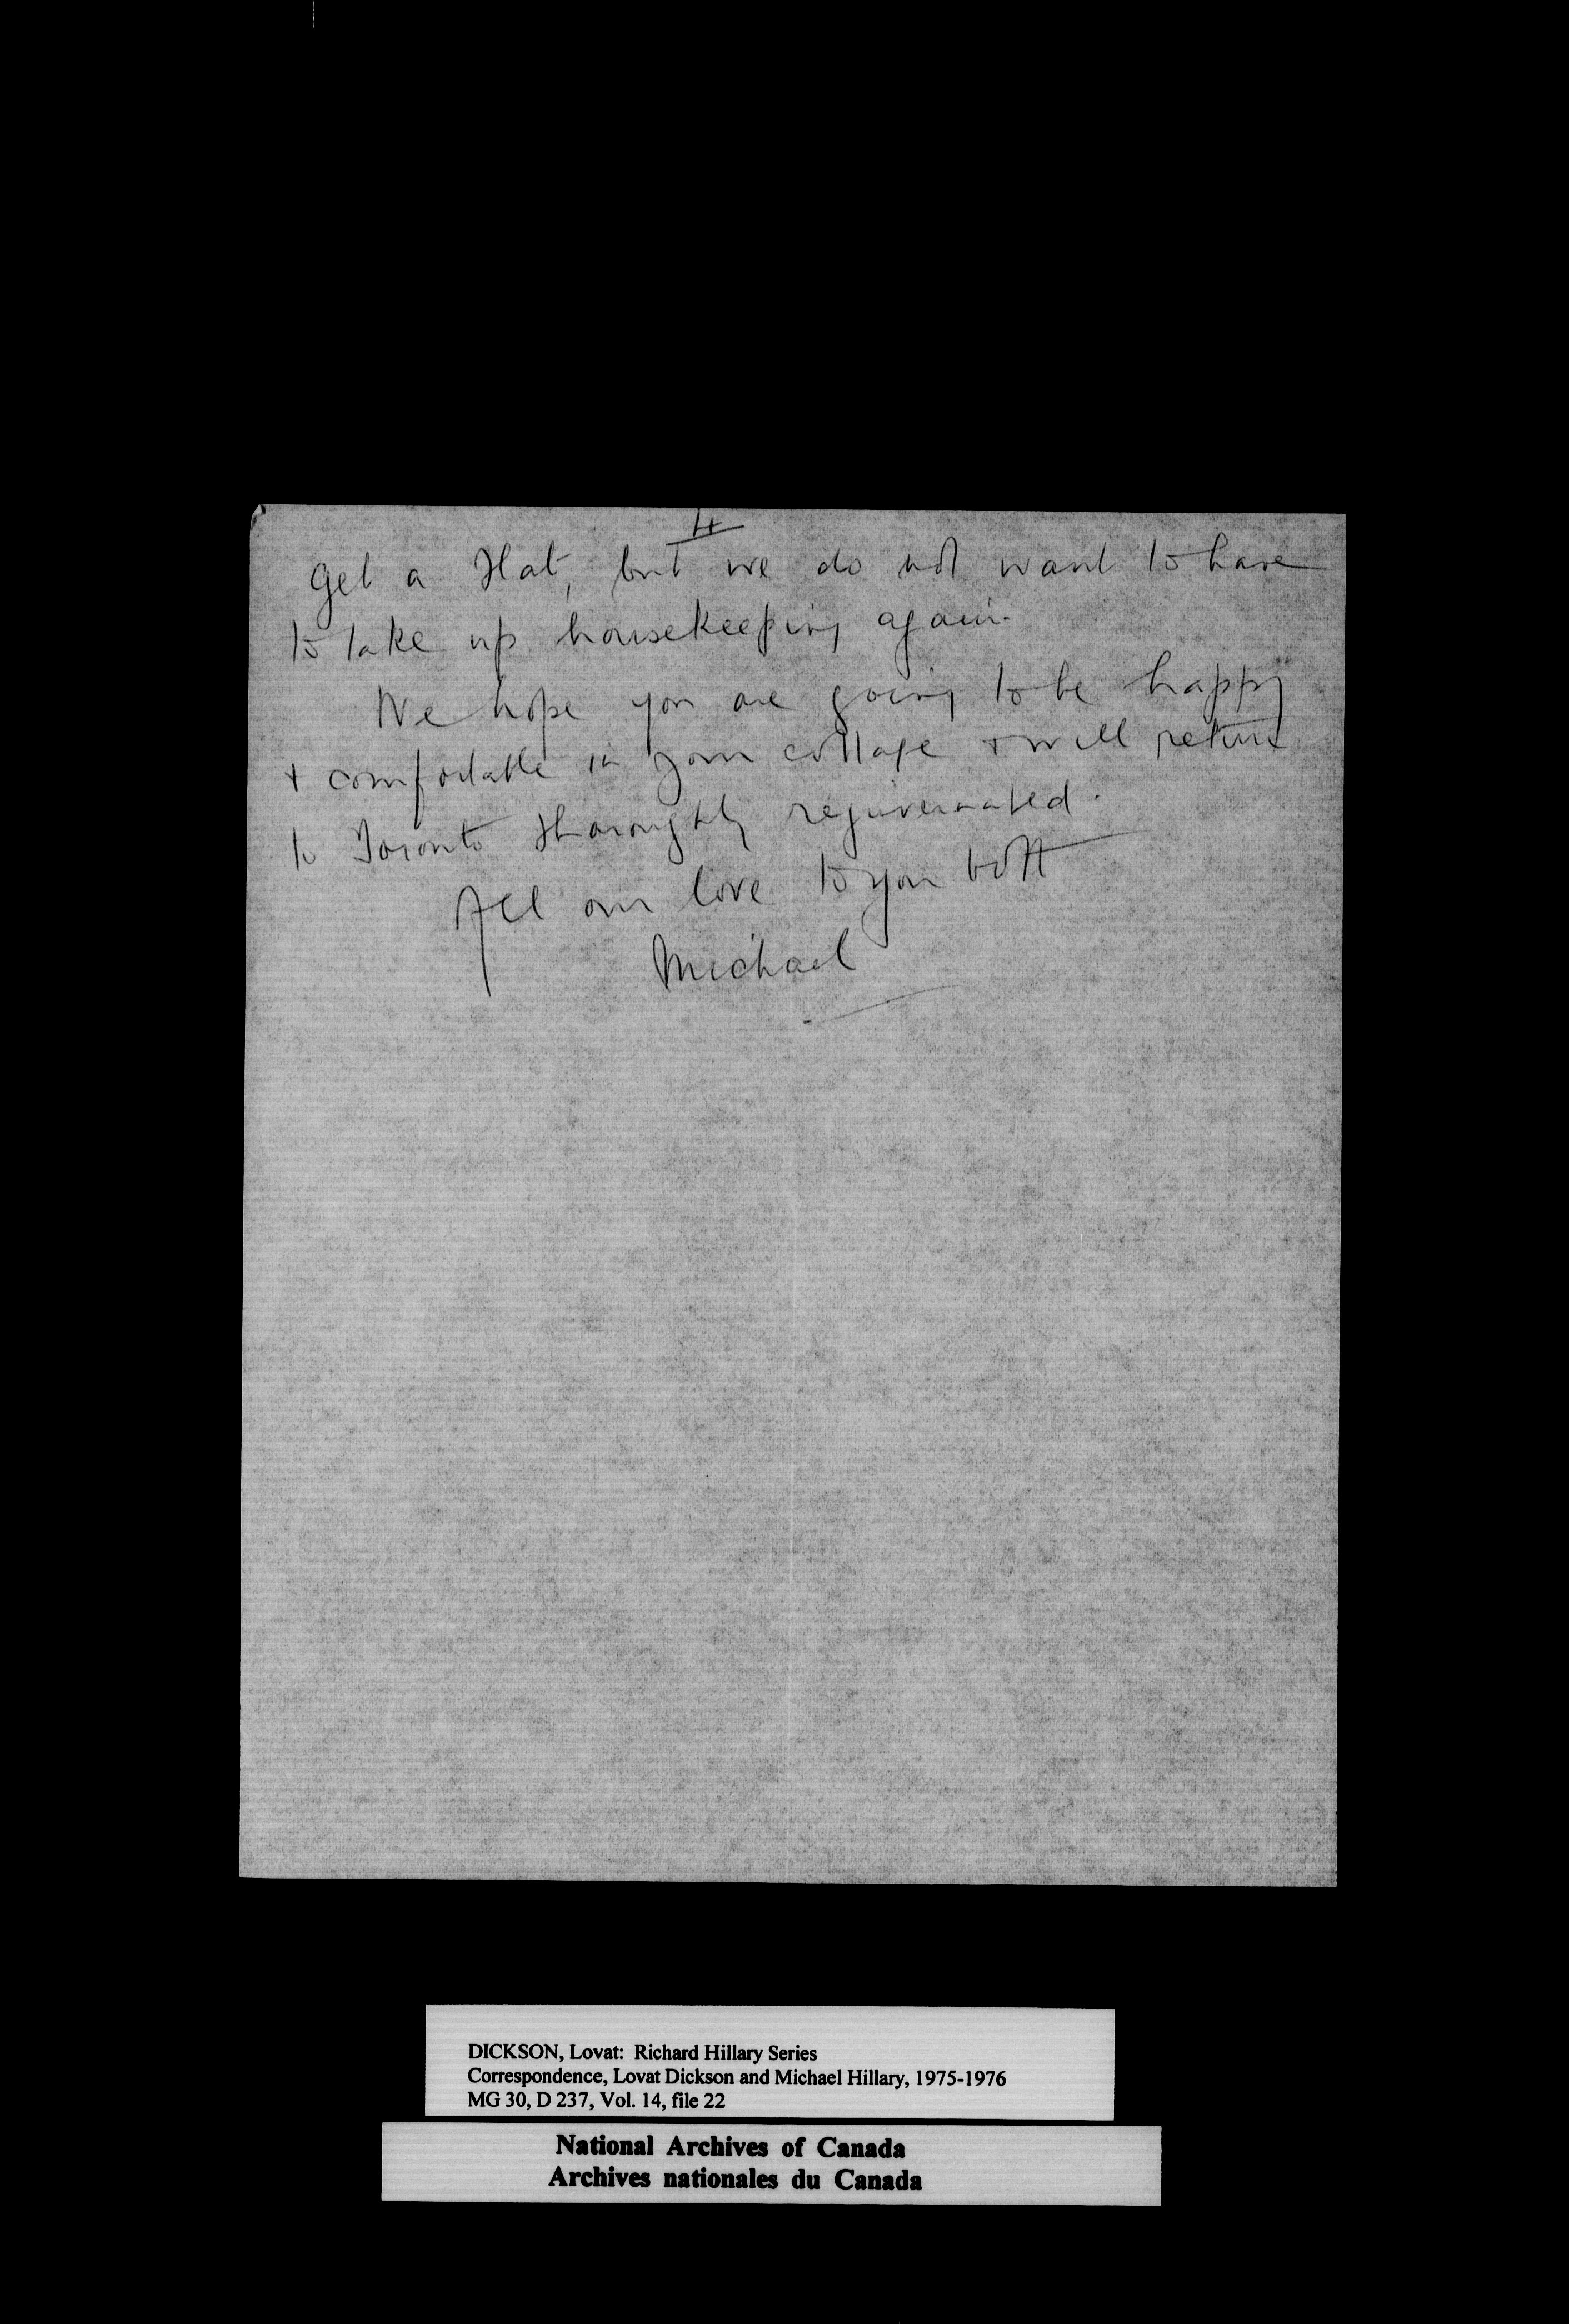 4
get a flat, but we do not want to have
to take up housekeeping again.
We hope you are going to be happy
+ comfortable in your cottage + will return
to Toronto thoroughly rejuvenated.
All our love to you both
Michael
DICKSON, Lovat: Richard Hillary Series
Correspondence, Lovat Dickson and Michael Hillary, 1975-1976
MG 30, D 237, Vol. 14, file 22
National Archives of Canada
Archives nationales du Canada